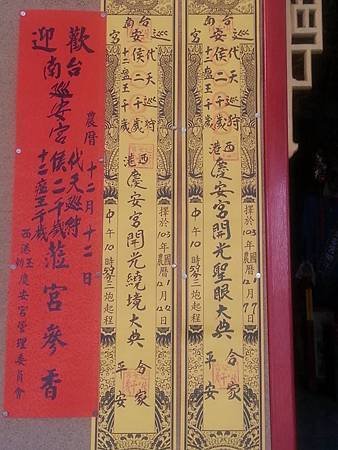 歡迎
台南巡安宮
代天巡狩
侯二千歲
十二瘟王千歲
蒞宮參香
農曆十二月十二日
西港
慶安宮管理委員會
台南
安宮
代天巡狩
侯二千歲
十二瘟王千歲
西港
慶安宮開光繞境大典
擇於103年
農曆12月12日
中午10時
三炮起程
合家平安
台南
安宮
代天巡狩
侯二千歲
十二瘟王千歲
西港
慶安宮開光聖眼大典
擇於103年
農曆12月7日
中午10時
三炮起程
合家平安